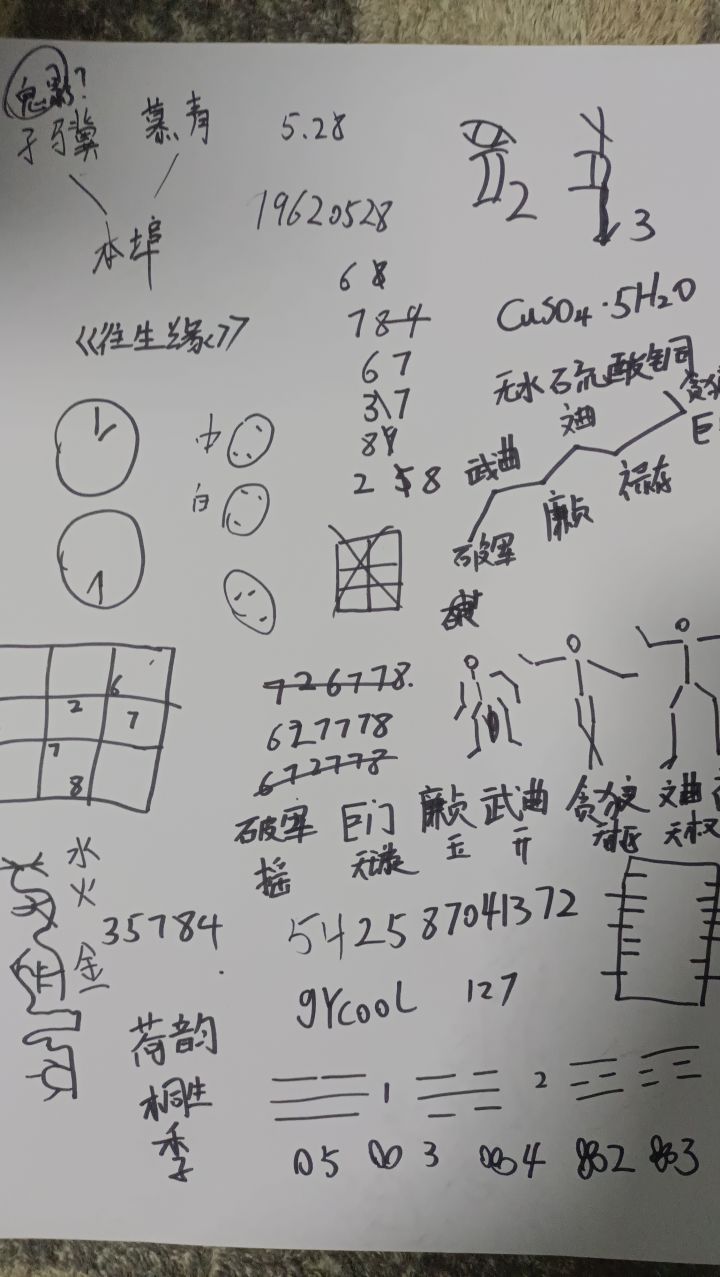 鬼影?
子冀 慕青 5.28
本埠 19620528
2 3
68
《往生缘》
784
CuSO4·5H2O
67
无水石流酸铜
317
文曲 贪狼
中
武曲 巨
白
258
廉贞 禄存
破军
726778
627778
672778
6
2 7
7
8
破军 巨门 廉贞 武曲 贪狼 文曲
摇 天璇 玉 开 天枢 天权
水
火
金
35784 542587041372
gYcooL 127
荷韵
桐生
季
1 2
05 00 3 004 882 883